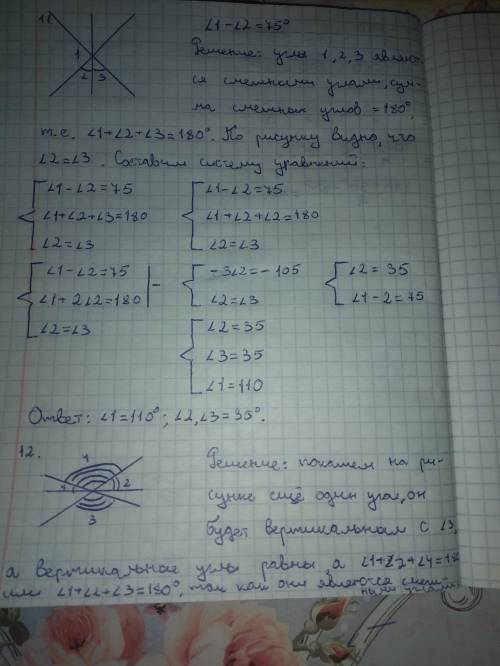 11
∠1-∠2=75°
1
2 3
Решение: углы 1, 2, 3 являют
ся смежными углами, сум-
ма смежных углов = 180°,
т.е. ∠1+∠2+∠3=180°. По рисунку видно, что
∠2=∠3. Составим систему уравнений:
∠1-∠2=75
∠1+∠2+∠3=180
∠2=∠3
∠1-∠2=75
∠1+∠2+∠2=180
∠2=∠3
∠1-∠2=75
∠1+2∠2=180
∠2=∠3
-
-3∠2=-105
∠2=∠3
∠2=35
∠1-2=75
∠2=35
∠3=35
∠1=110
Ответ: ∠1=110°; ∠2,∠3=35°.
12.
4
1 2
3
Решение: покажем на ри-
сунке ещё один угол, он
будет вертикальным с ∠3,
а вертикальные углы равны, а ∠1+∠2+∠4=180
или ∠1+∠2+∠3=180°, так как они являются смеж-
ными углами